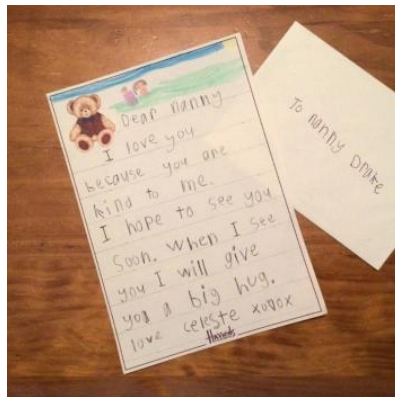 Dear nanny
I love you
because you are
kind to me.
I hope to see you
soon. When I see
you I will give
you a big hug.
love celeste xoxox
Harrods
To nanny Drake